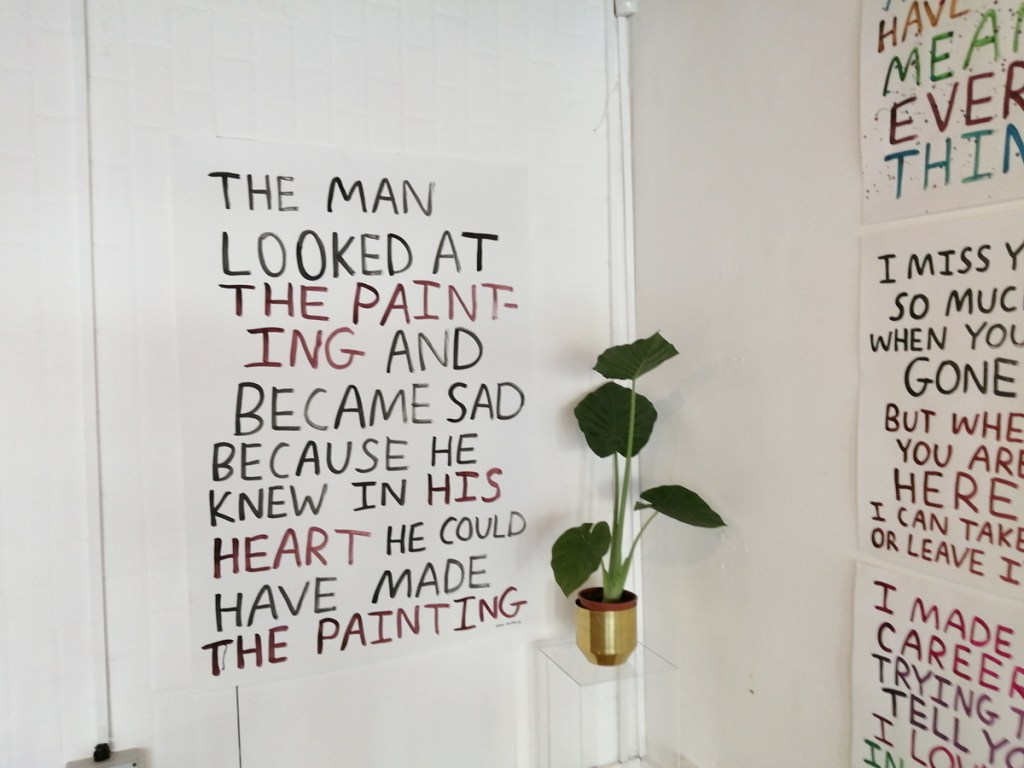 THE MAN
LOOKED AT
THE PAINT-
ING AND
BECAME SAD
BECAUSE HE
KNEW IN HIS
HEART HE COULD
HAVE MADE
THE PAINTING
HAVE
MEA
EVER
THIN
I MISS Y
SO MUC
WHEN YOU
GONE
BUT WHE
YOU ARE
HERE
I CAN TAKE
OR LEAVE I
I MADE
CAREER
TRYING T
TELL YO
I LOV
IN